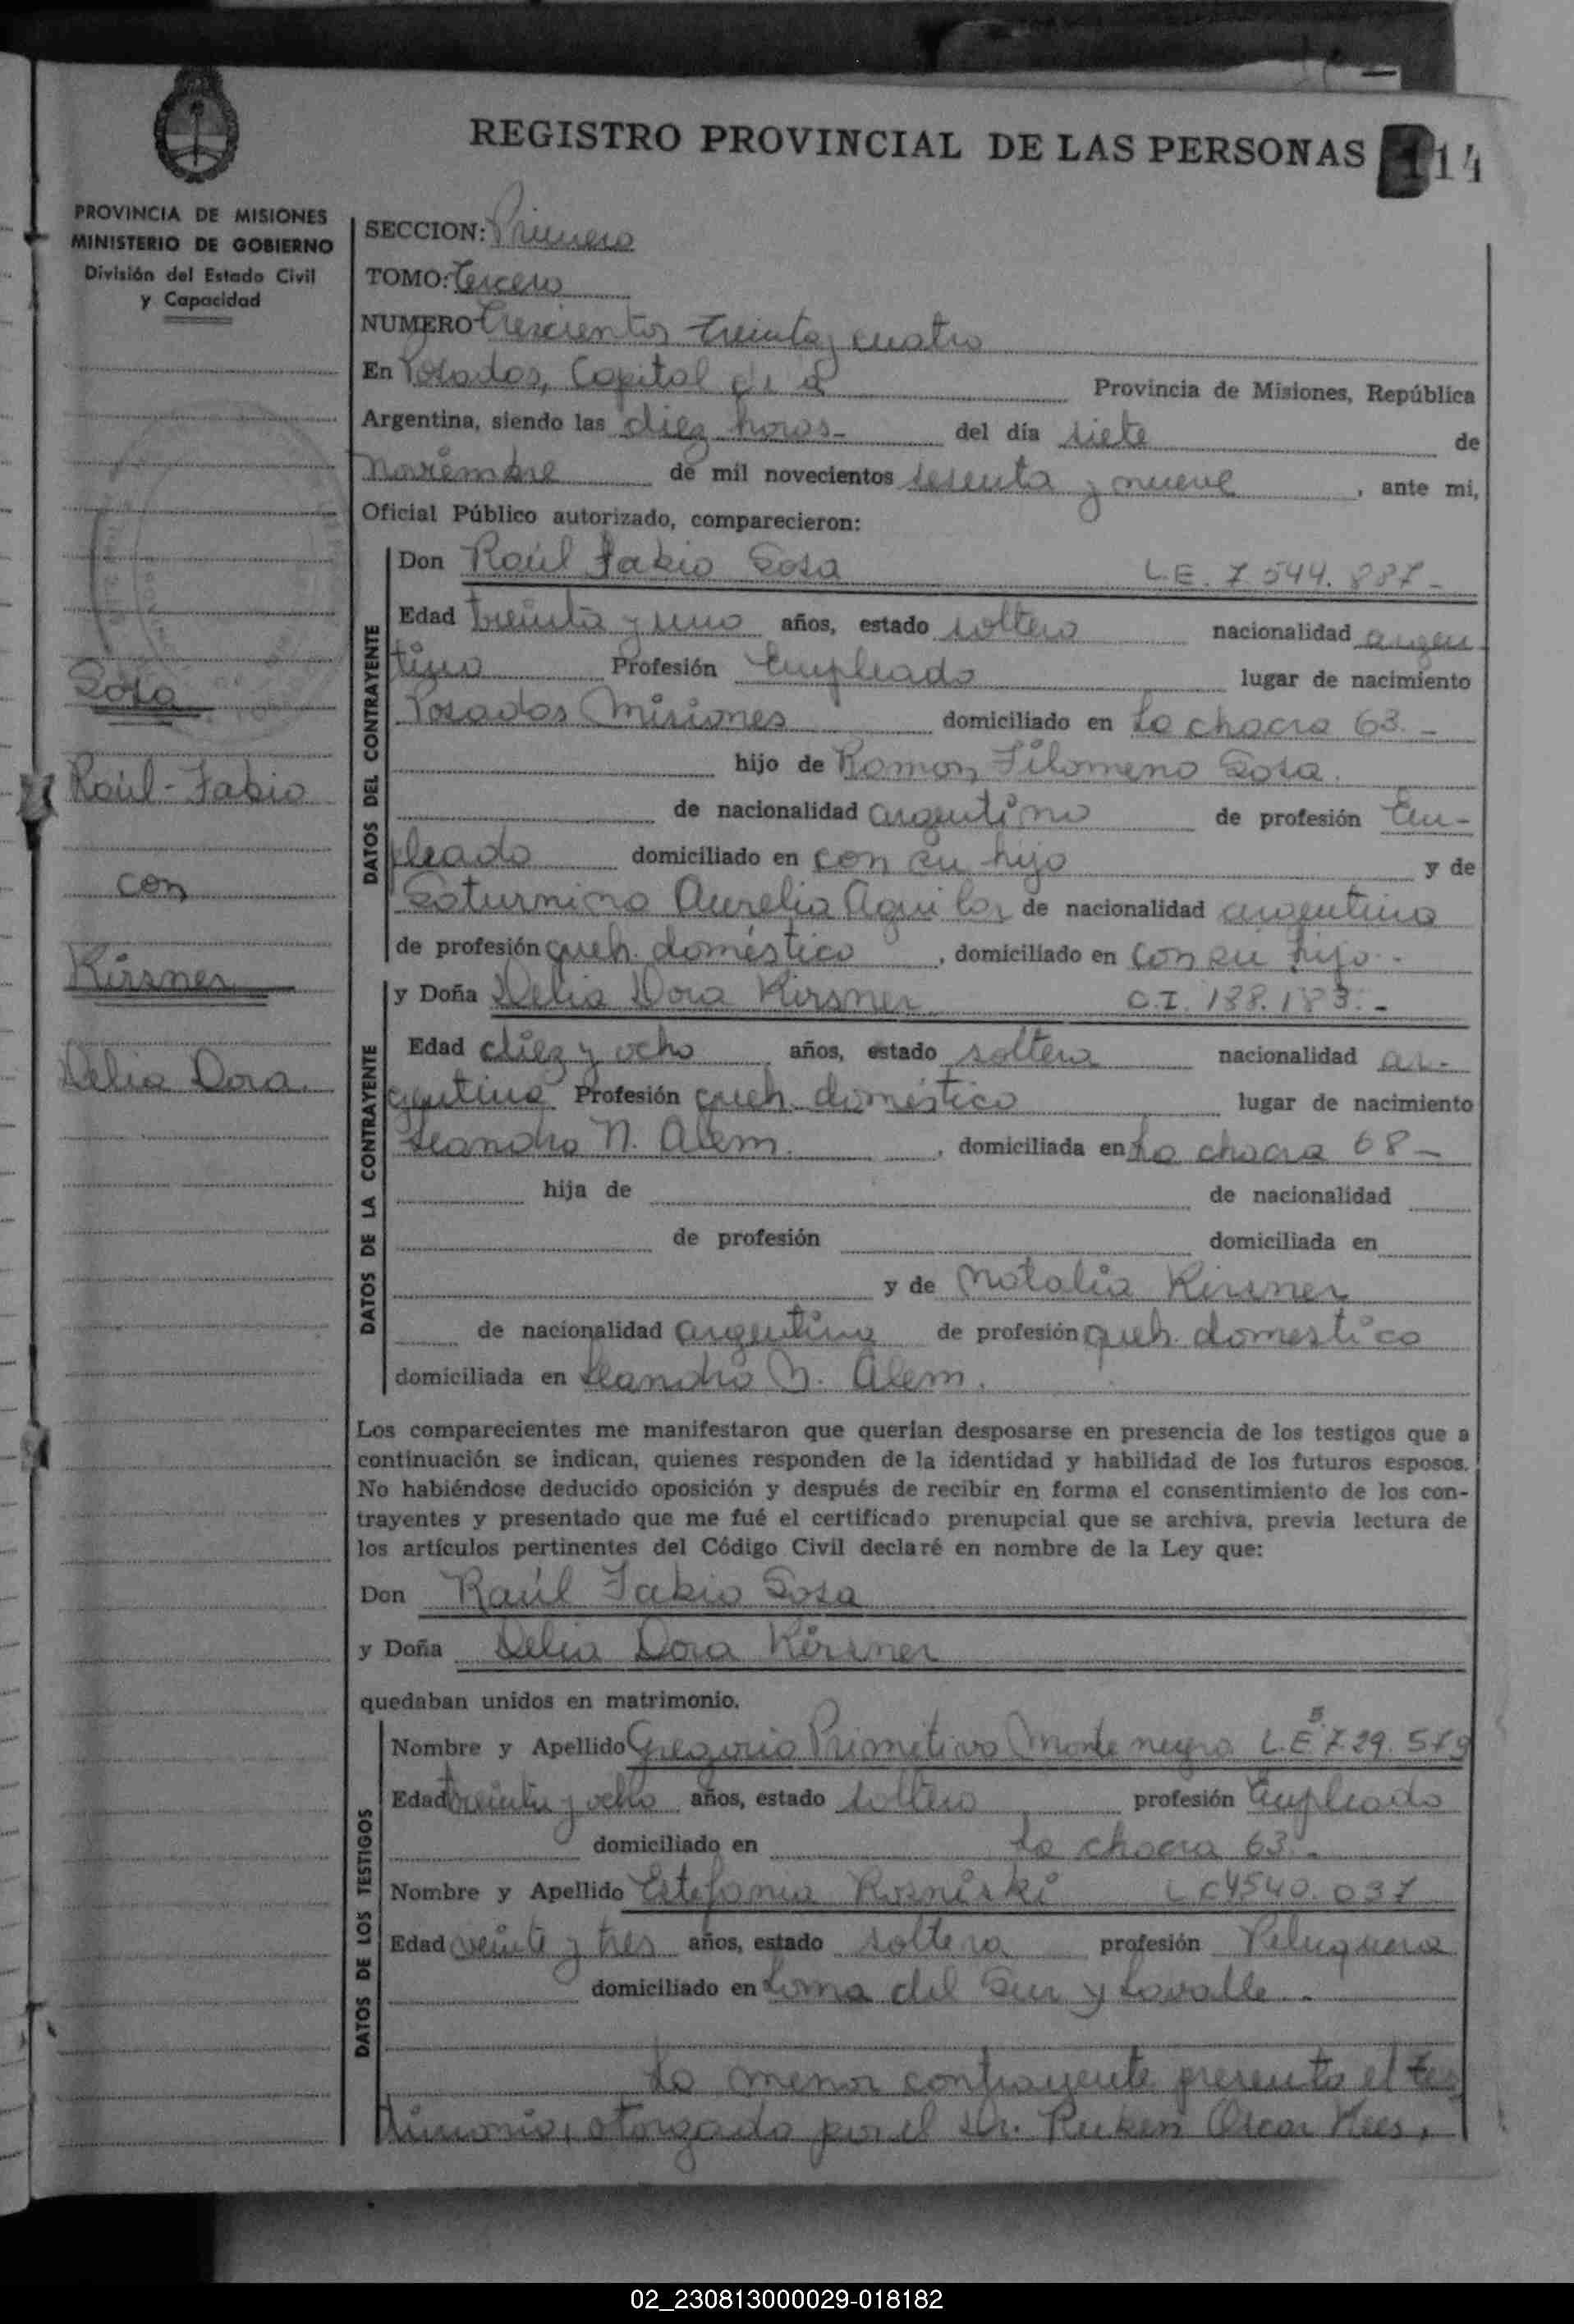 REGISTRO PROVINCIAL DE LAS PERSONAS 114
PROVINCIA DE MISIONES
MINISTERIO DE GOBIERNO
División del Estado Civil
y Capacidad
Sosa
Raúl - Fabio
con
Kirsner
Delia Dora.
SECCION: Primera
TOMO: tercero
NUMERO trescientos treinta y cuatro
En Posadas, Capital de la Provincia de Misiones, República
Argentina, siendo las diez horas- del día siete de
noviembre de mil novecientos sesenta y nueve, ante mi,
Oficial Público autorizado, comparecieron:
DATOS DEL CONTRAYENTE
Don Raúl Fabio Sosa L.E. 7.544.887-
Edad treinta y uno años, estado soltero nacionalidad argen
tino Profesión Empleado lugar de nacimiento
Posadas Misiones domiciliado en La chacra 63.-
hijo de Ramon Filomeno Sosa.
de nacionalidad argentino de profesión Em-
pleado domiciliado en con su hijo y de
Saturnina Aurelia Aguilar de nacionalidad argentina
de profesión queh. doméstico, domiciliado en con su hijo.-
DATOS DE LA CONTRAYENTE
y Doña Delia Dora Kirsner C.I. 138.183.-
Edad diez y ocho años, estado soltera nacionalidad ar-
gentina Profesión queh. doméstico lugar de nacimiento
Leandro N. Alem., domiciliada en La chacra 68-
hija de de nacionalidad
de profesión domiciliada en
y de Natalia Kirsner
de nacionalidad argentina de profesión queh. domestico
domiciliada en Leandro N. Alem.
Los comparecientes me manifestaron que querían desposarse en presencia de los testigos que a
continuación se indican, quienes responden de la identidad y habilidad de los futuros esposos.
No habiéndose deducido oposición y después de recibir en forma el consentimiento de los con-
trayentes y presentado que me fué el certificado prenupcial que se archiva, previa lectura de
los artículos pertinentes del Código Civil declaré en nombre de la Ley que:
Don Raúl Fabio Sosa
y Doña Delia Dora Kirsner
quedaban unidos en matrimonio.
DATOS DE LOS TESTIGOS
Nombre y Apellido Gregorio Primitivo Montenegro L.E.
Edad treinta y ocho años, estado soltero profesión Empleado
domiciliado en La chacra 63.-
Nombre y Apellido Estefania Rosniski LC4540.037
Edad veinte y tres años, estado soltera profesión Peluquera
domiciliado en Loma del Sur y Lavalle.
La menor contrayente presenta el tes
timonio, otorgado por el Dr. Ruben Oscar Hees,
02_230813000029-018182